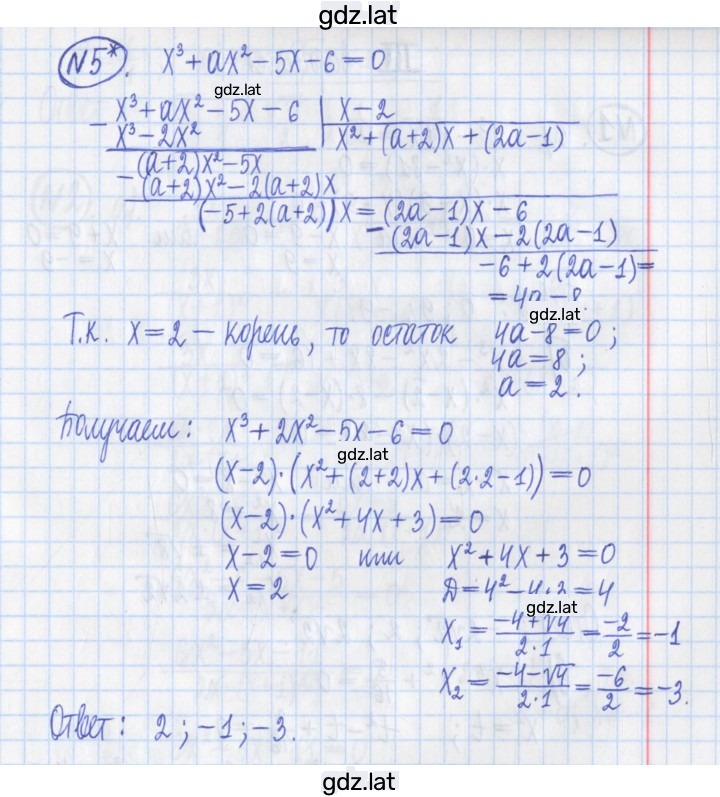 gdz.lat
N5*. x³ + ax² − 5x − 6 = 0
gdz.lat
x³ + ax² − 5x − 6 | x − 2
− x³ − 2x² | x² + (a+2)x + (2a−1)
(a+2)x² − 5x
− (a+2)x² − 2(a+2)x
(−5+2(a+2))x = (2a−1)x − 6
− (2a−1)x − 2(2a−1)
−6 + 2(2a−1) =
= 4a − 8.
gdz.lat
Т.к. x = 2 − корень, то остаток 4a − 8 = 0;
4a = 8;
a = 2.
Получаем: x³ + 2x² − 5x − 6 = 0
gdz.lat
(x−2)·(x² + (2+2)x + (2·2−1)) = 0
(x−2)·(x² + 4x + 3) = 0
x − 2 = 0 или x² + 4x + 3 = 0
x = 2 D = 4² − 4·3 = 4
gdz.lat
x₁ = (−4+√4)/(2·1) = −2/2 = −1
x₂ = (−4−√4)/(2·1) = −6/2 = −3.
Ответ: 2; −1; −3.
gdz.lat